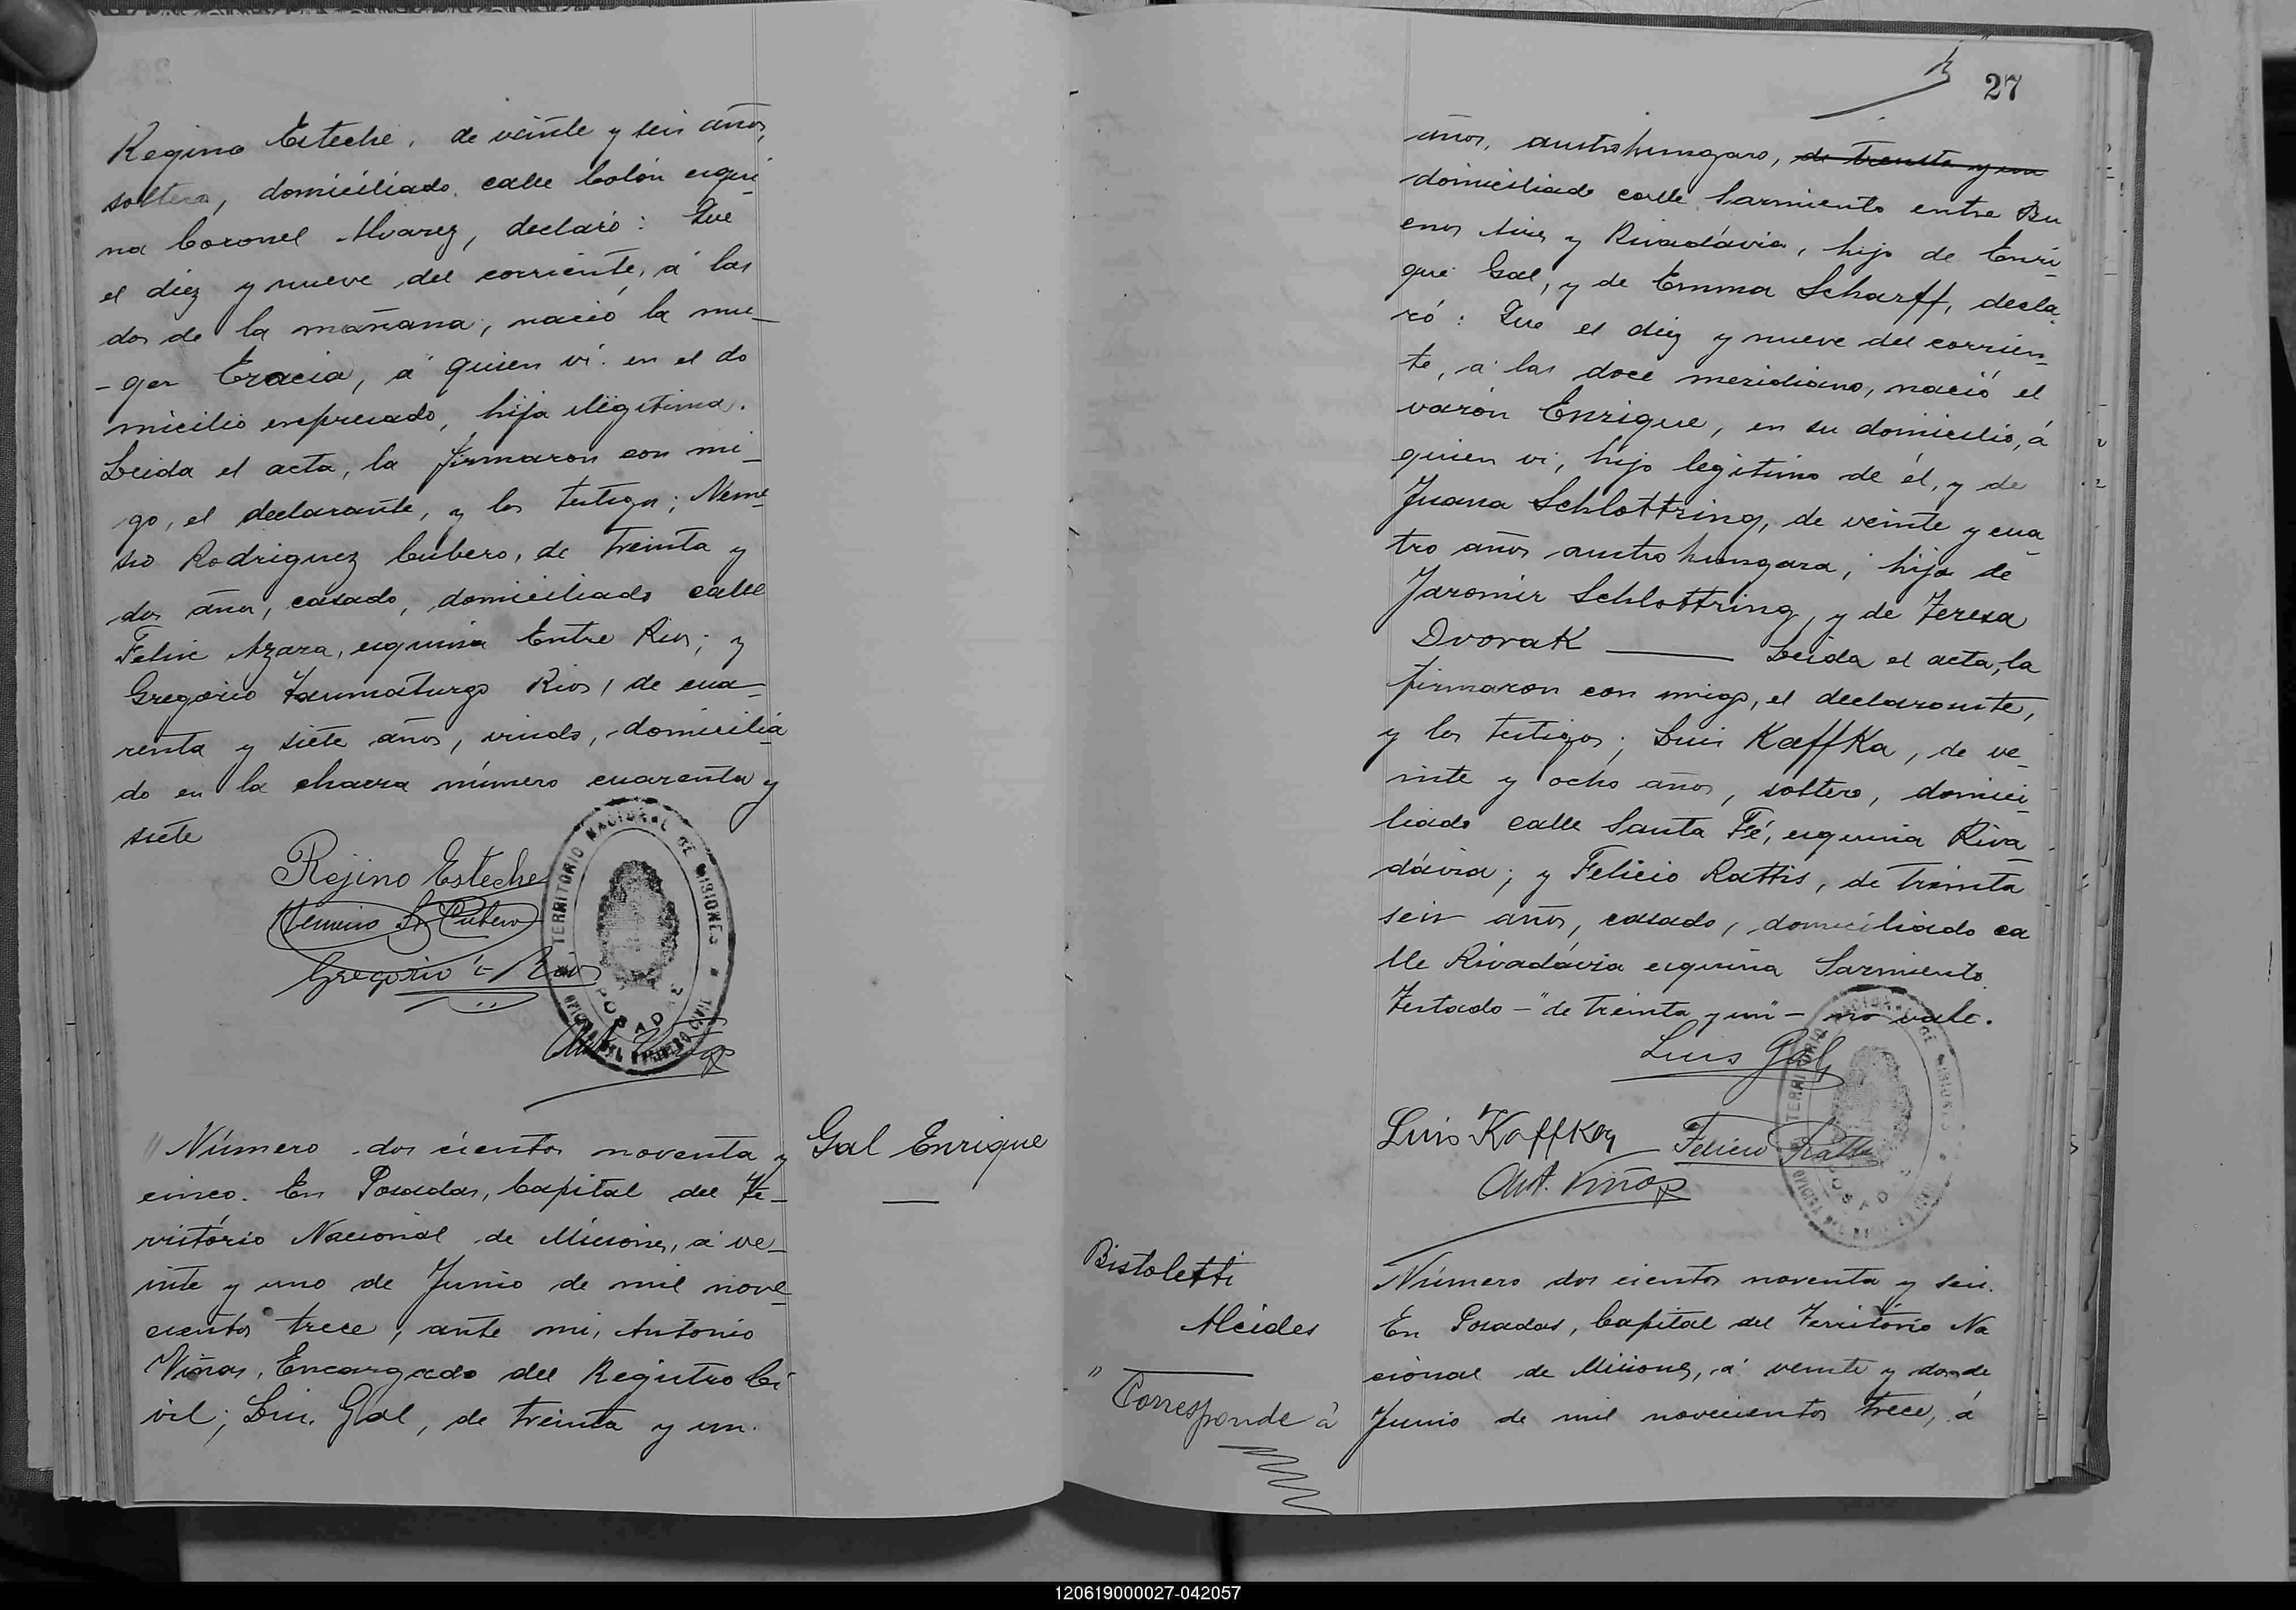 Regino Esteche, de veinte y seis años,
soltero, domiciliado calle Colón esqui
na Coronel Alvarez, declaró: Que
el diez y nueve del corriente, á las
dos de la mañana, nació la mu-
-ger Eracia, á quien ví en el do
micilio expresado, hija ilegitima.
Leida el acta, la firmaron con mi-
go, el declarante, y los testigos; Neme-
sio Rodriguez Cubero, de treinta y
dos años, casado, domiciliado calle
Felix Azara, esquina Entre Rios; y
Gregorio Taumaturgo Rios, de cua-
renta y siete años, viudo, domicilia
do en la chacra número cuarenta y
siete
Rejino Esteche
Cubero
Gregorio T. Rios
TERRITORIO NACIONAL DE MISIONES
OFICINA DEL REGISTRO CIVIL
POSADAS
Gal Enrique
Número dos cientos noventa y
cinco. En Posadas, Capital del Te-
rritório Nacional de Misiones, á ve-
inte y uno de Junio de mil nove-
cientos trece, ante mi, Antonio
Viñas, Encargado del Registro Ci
vil; Luis Gal, de treinta y un
27
años, austrohungaro, de treinta y un
domiciliado calle Sarmiento entre Bu
enos Aires y Rivadávia, hijo de Enri-
que Gal, y de Emma Scharff, decla
ró: Que el diez y nueve del corrien-
te, á las doce meridiano, nació el
varón Enrique, en su domicilio, á
quien vi, hijo legitimo de él, y de
Juana Schlottring, de veinte y cua-
tro años austro hungara, hija de
Jaromir Schlottring, y de Teresa
Dvorak — Leida el acta, la
firmaron con migo, el declarante,
y los testigos; Luis Kaffka, de ve-
inte y ocho años, soltero, domici-
liado calle Santa Fé, esquina Riva-
dávia; y Felicio Rattis, de treinta
seis años, casado, domiciliado ca
lle Rivadávia esquina Sarmiento.
Testado - "de treinta y un" - no vale.
Luis Gal
Luis Kaffka Felicio Rattis
Ant. Viñas
TERRITORIO NACIONAL DE MISIONES
OFICINA DEL REGISTRO CIVIL
POSADAS
Bistoletti
Alcides
"Corresponde á
Número dos cientos noventa y seis.
En Posadas, Capital del Território Na
cional de Misiones, á veinte y dos de
Junio de mil novecientos trece, á
120619000027-042057